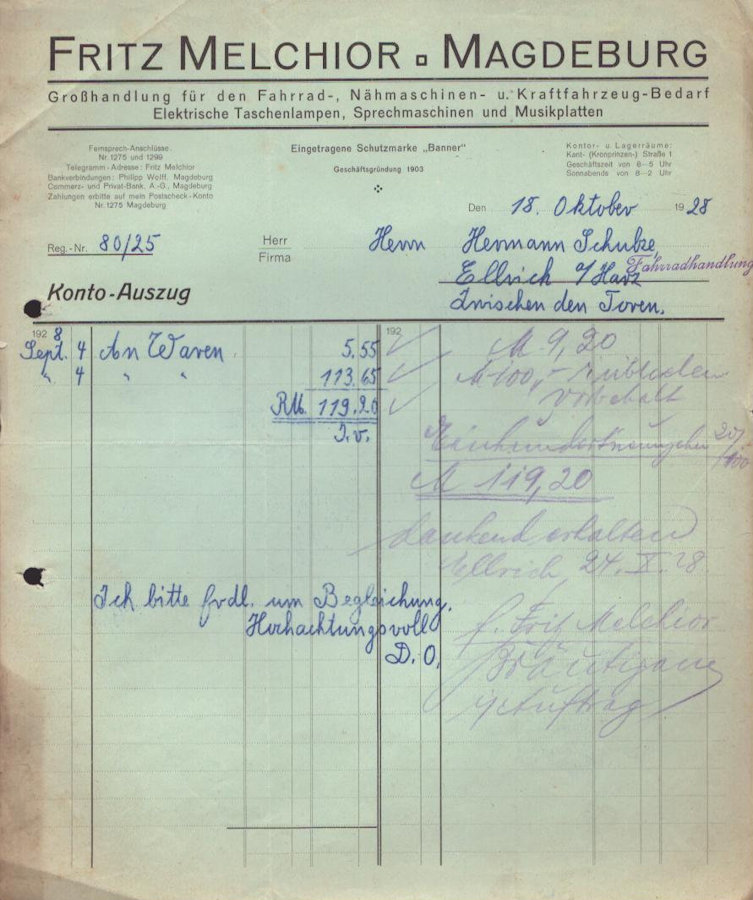 FRITZ MELCHIOR MAGDEBURG
Großhandlung für den Fahrrad-, Nähmaschinen- u. Kraftfahrzeug-Bedarf
Elektrische Taschenlampen, Sprechmaschinen und Musikplatten
Fernsprech-Anschlüsse:
Nr. 1275 und 1299
Telegramm-Adresse: Fritz Melchior
Bankverbindungen: Philipp Wolff, Magdeburg
Commerz- und Privat-Bank, A.-G., Magdeburg
Zahlungen erbitte auf mein Postscheck-Konto
Nr. 1275 Magdeburg
Eingetragene Schutzmarke „Banner"
Geschäftsgründung 1903
Kontor- u. Lagerräume:
Kant- (Kronprinzen-) Straße 1
Geschäftszeit von 8–5 Uhr
Sonnabends von 8–2 Uhr
Den 18. Oktober 1928
Reg.-Nr. 80/25
Herr
Firma
Herrn Hermann Schulze,
Fahrradhandlung
Ellrich a/Harz
Zwischen den Toren.
Konto-Auszug
1928
192
Sept. 4 An Waren 5.55
" 4 " " 113.65
RM. 119.20
D. O.
M 9,20
M 100,-
vorbehalt
20/100
M 119,20
dankend erhalten
Ellrich, 24. X. 28
Ich bitte frdl. um Begleichung.
Hochachtungsvoll
f. Fritz Melchior
Bräutigam